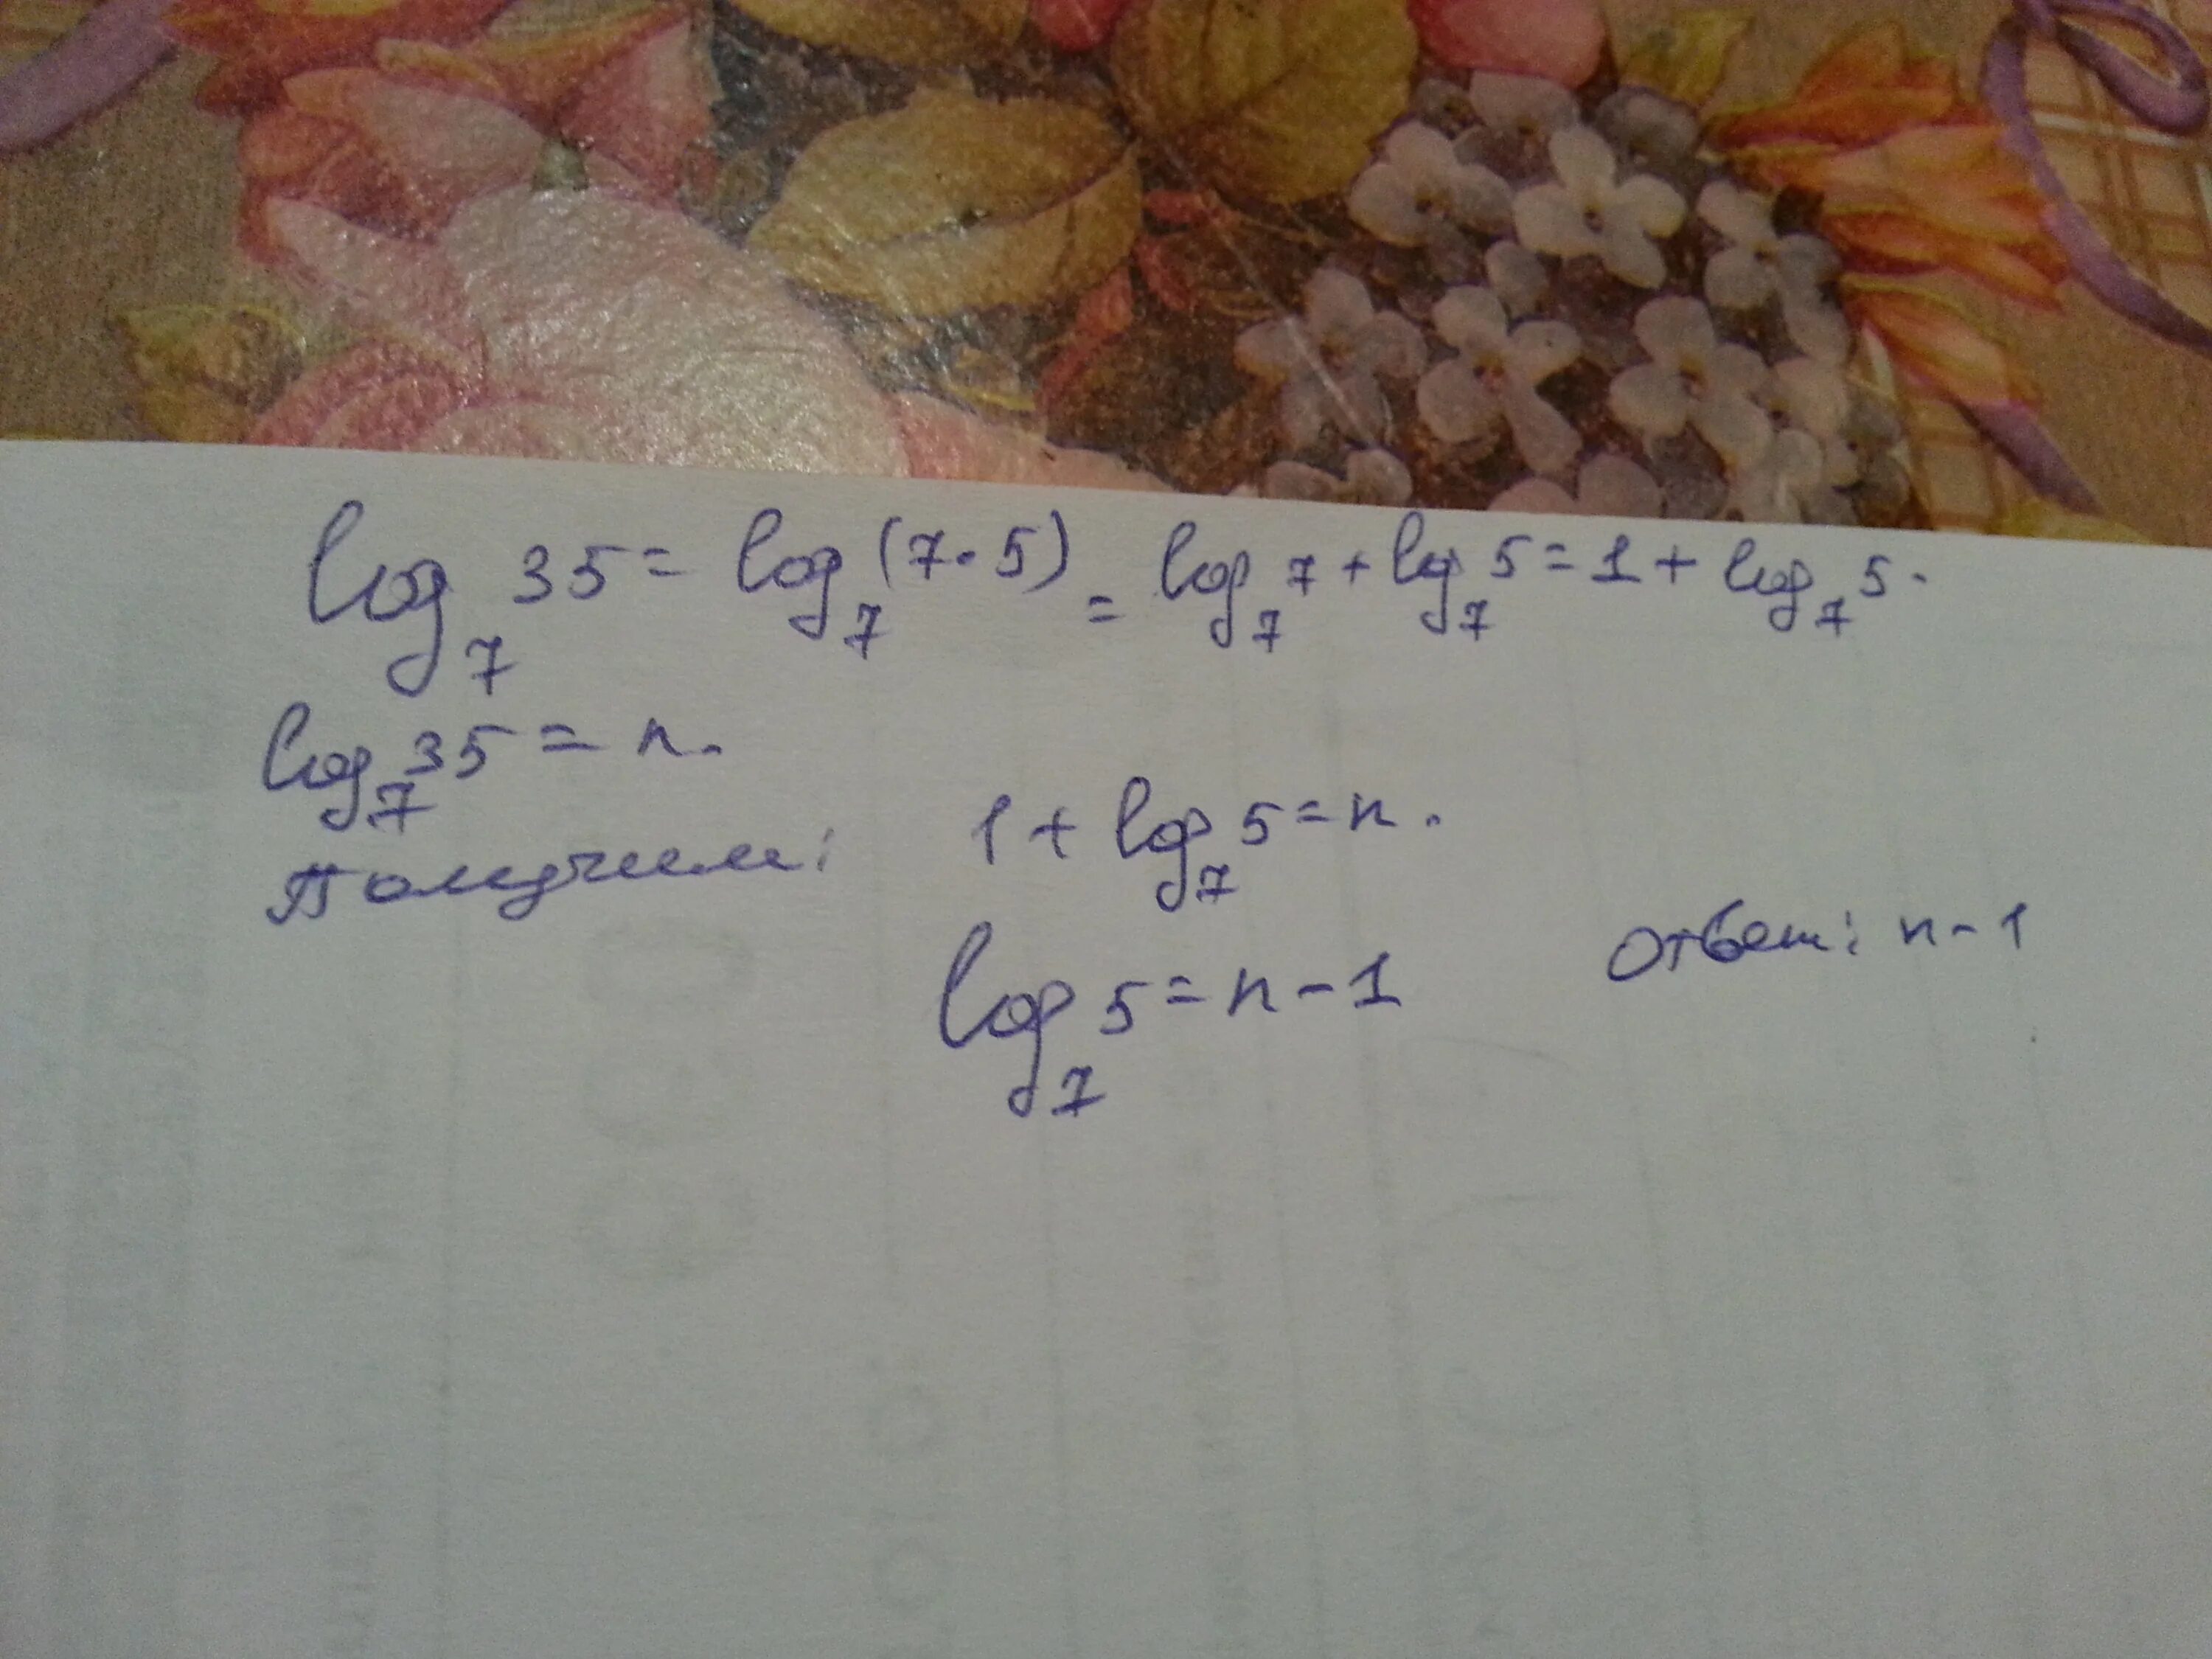 log₇ 35 = log₇ (7·5) = log₇ 7 + log₇ 5 = 1 + log₇ 5.
log₇ 35 = n.
Получим: 1 + log₇ 5 = n.
log₇ 5 = n - 1
Ответ: n - 1